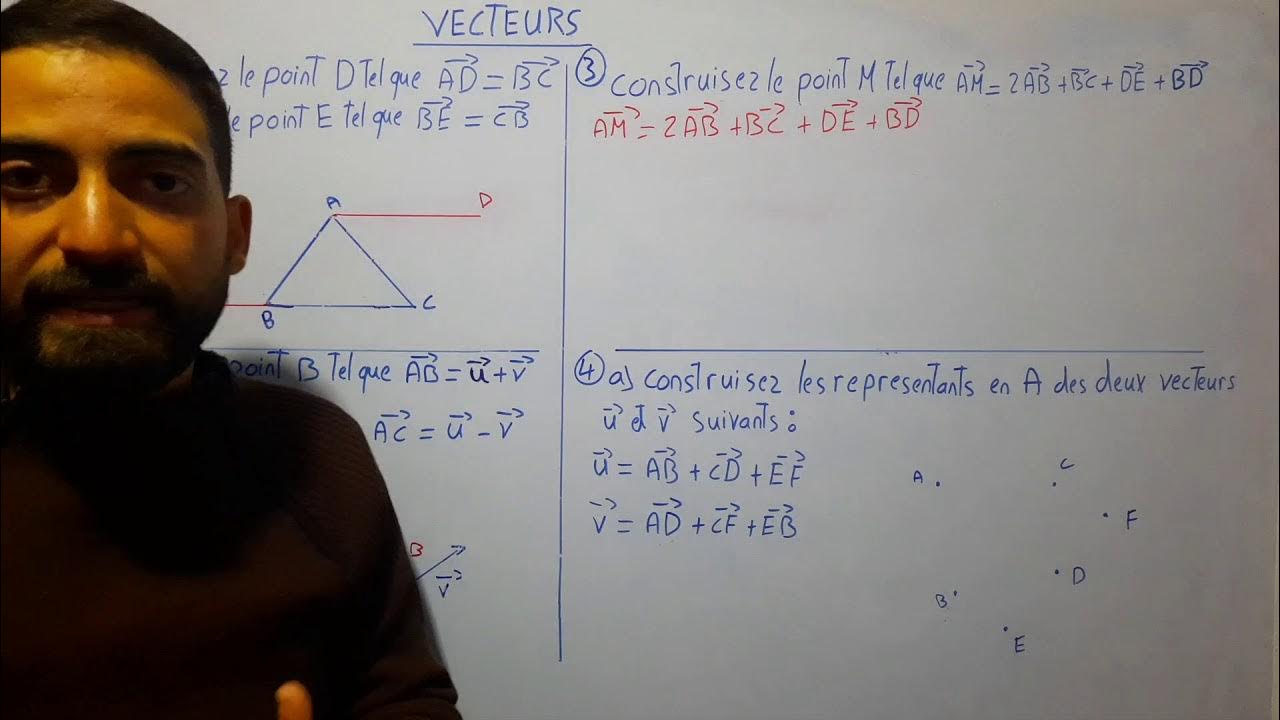 VECTEURS
le point D Tel que AD⃗ = BC⃗
point E Tel que BE⃗ = CB⃗
A
D
B
C
point B Tel que AB⃗ = u⃗ + v⃗
AC⃗ = u⃗ - v⃗
B
v⃗
③ construisez le point M Tel que AM⃗ = 2AB⃗ + BC⃗ + DE⃗ + BD⃗
AM⃗ = 2AB⃗ + BC⃗ + DE⃗ + BD⃗
④ a) construisez les representants en A des deux vecteurs
u⃗ et v⃗ suivants :
u⃗ = AB⃗ + CD⃗ + EF⃗
v⃗ = AD⃗ + CF⃗ + EB⃗
A
C
F
D
B
E